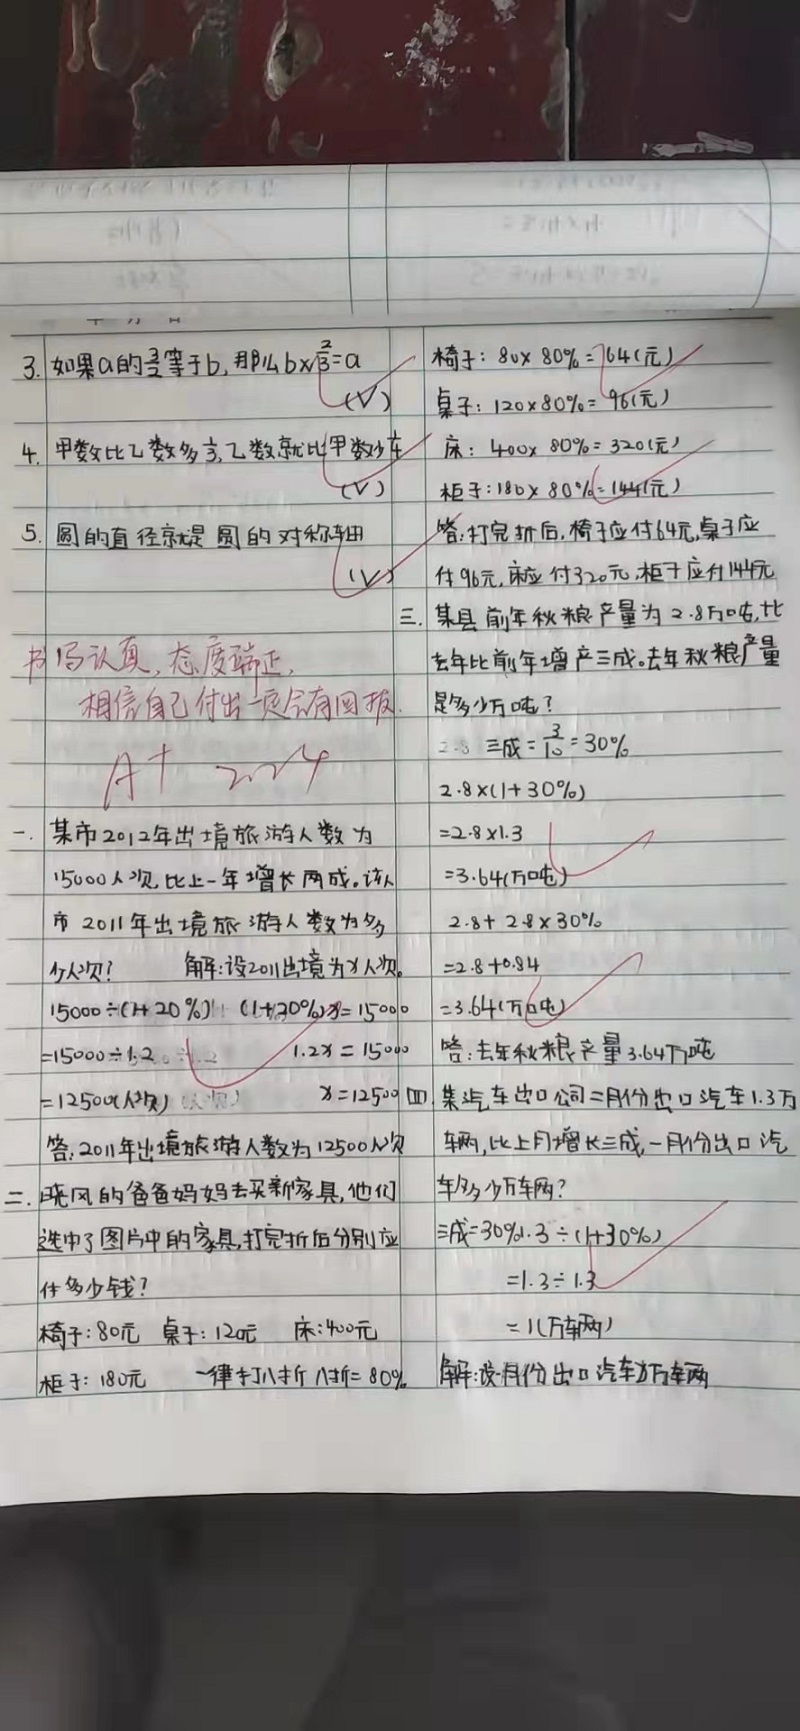 3. 如果a的3/2等于b,那么b×2/3=a
(√)
4. 甲数比乙数多,乙数就比甲数少
(√)
5. 圆的直径就是圆的对称轴
(√)
书写认真,态度端正,
相信自己付出一定会有回报.
A+ 2.24
一. 某市2012年出境旅游人数为
15000人次,比上一年增长两成。该
市2011年出境旅游人数为多
少人次? 解:设2011出境为x人次。
15000÷(1+20%) (1+20%)x=15000
=15000÷1.2 1.2x=15000
=12500(人次) x=12500
答:2011年出境旅游人数为12500人次
二. 晓风的爸爸妈妈去买新家具,他们
选中了图片中的家具,打完折后分别应
付多少钱?
椅子:80元 桌子:120元 床:400元
柜子:180元 一律打八折 八折=80%
椅子:80×80%=64(元)
桌子:120×80%=96(元)
床:400×80%=320(元)
柜子:180×80%=144(元)
答:打完折后,椅子应付64元,桌子应
付96元,床应付320元,柜子应付144元
三. 某县前年秋粮产量为2.8万吨,比
去年比前年增产三成。去年秋粮产量
是多少万吨?
2.8 三成=3/10=30%
2.8×(1+30%)
=2.8×1.3
=3.64(万吨)
2.8+2.8×30%
=2.8+0.84
=3.64(万吨)
答:去年秋粮产量3.64万吨
四. 某汽车出口公司二月份出口汽车1.3万
车两,比上月增长三成,一月份出口汽
车多少万车两?
三成=30% 1.3÷(1+30%)
=1.3÷1.3
=1(万车两)
解:设一月份出口汽车x万车两